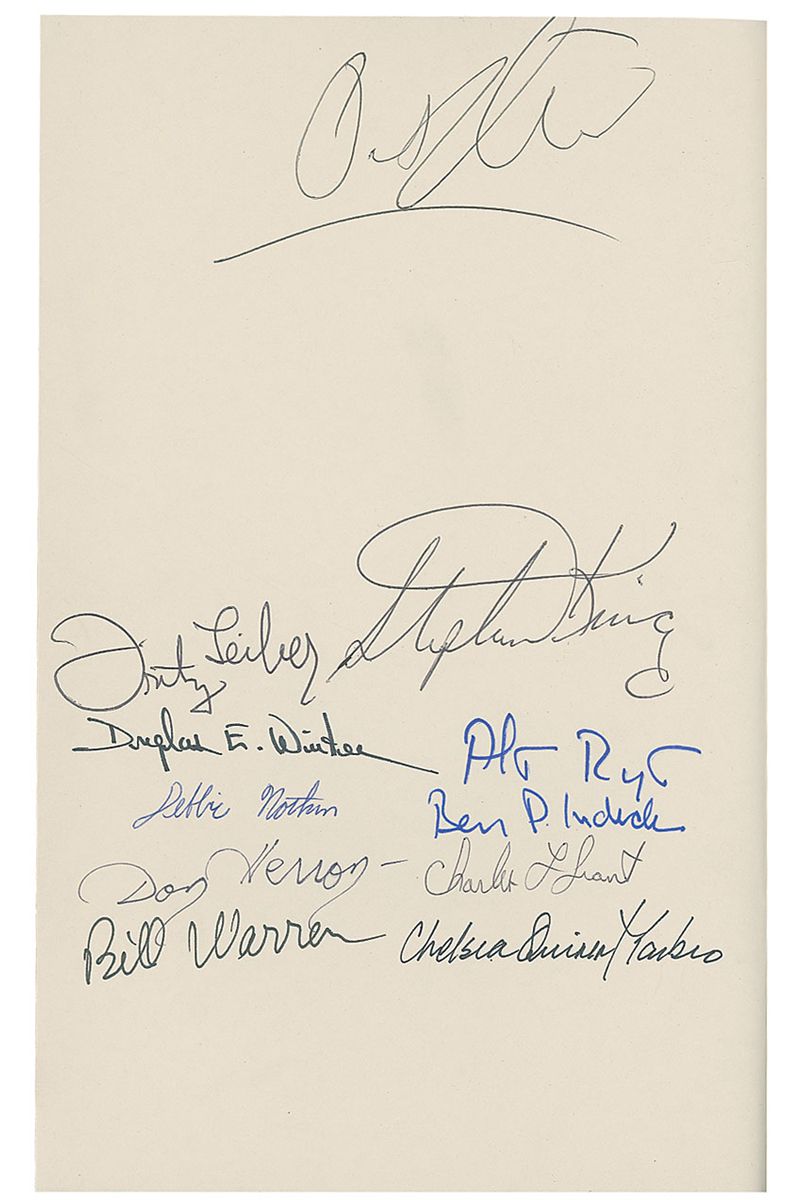 Stephen King
Fritz Leiber
Douglas E. Winter
Debbie Notkin
Ben P. Indick
Don Herron
Charles L Grant
Bill Warren
Chelsea Quinn Yarbro